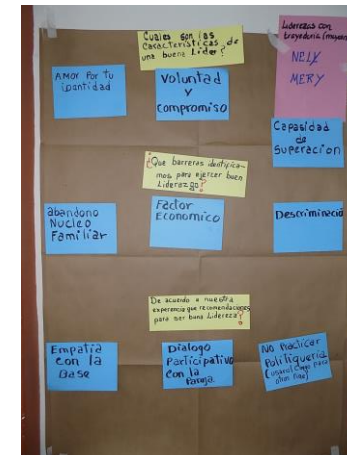 Cuales son las
Características de
una buena Lider?
Liderezas con
trayectoria (mayores
NELY
MERY
AMOR POR TU
IDANTIDAD
Voluntad
y
Compromiso
Capasidad
de
Superacion
¿Que barreras identifica-
mos para ejercer buen
Liderazgo?
abandono
Nucleo
Familiar
Factor
Economico
Descriminació
De acuerdo a nuestra
experencia que recomendaciones
para ser buna Lidereza?
Empatia
con la
Base
Dialogo
Participativo
Con la
Pareja
No Practicar
Politiqueria
para